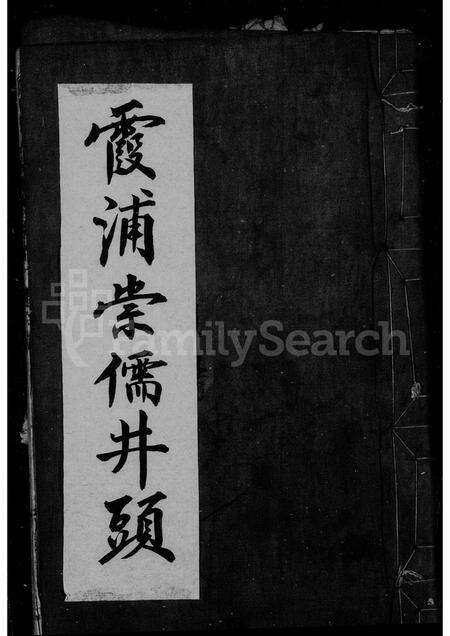 霞浦崇儒井頭
FamilySearch